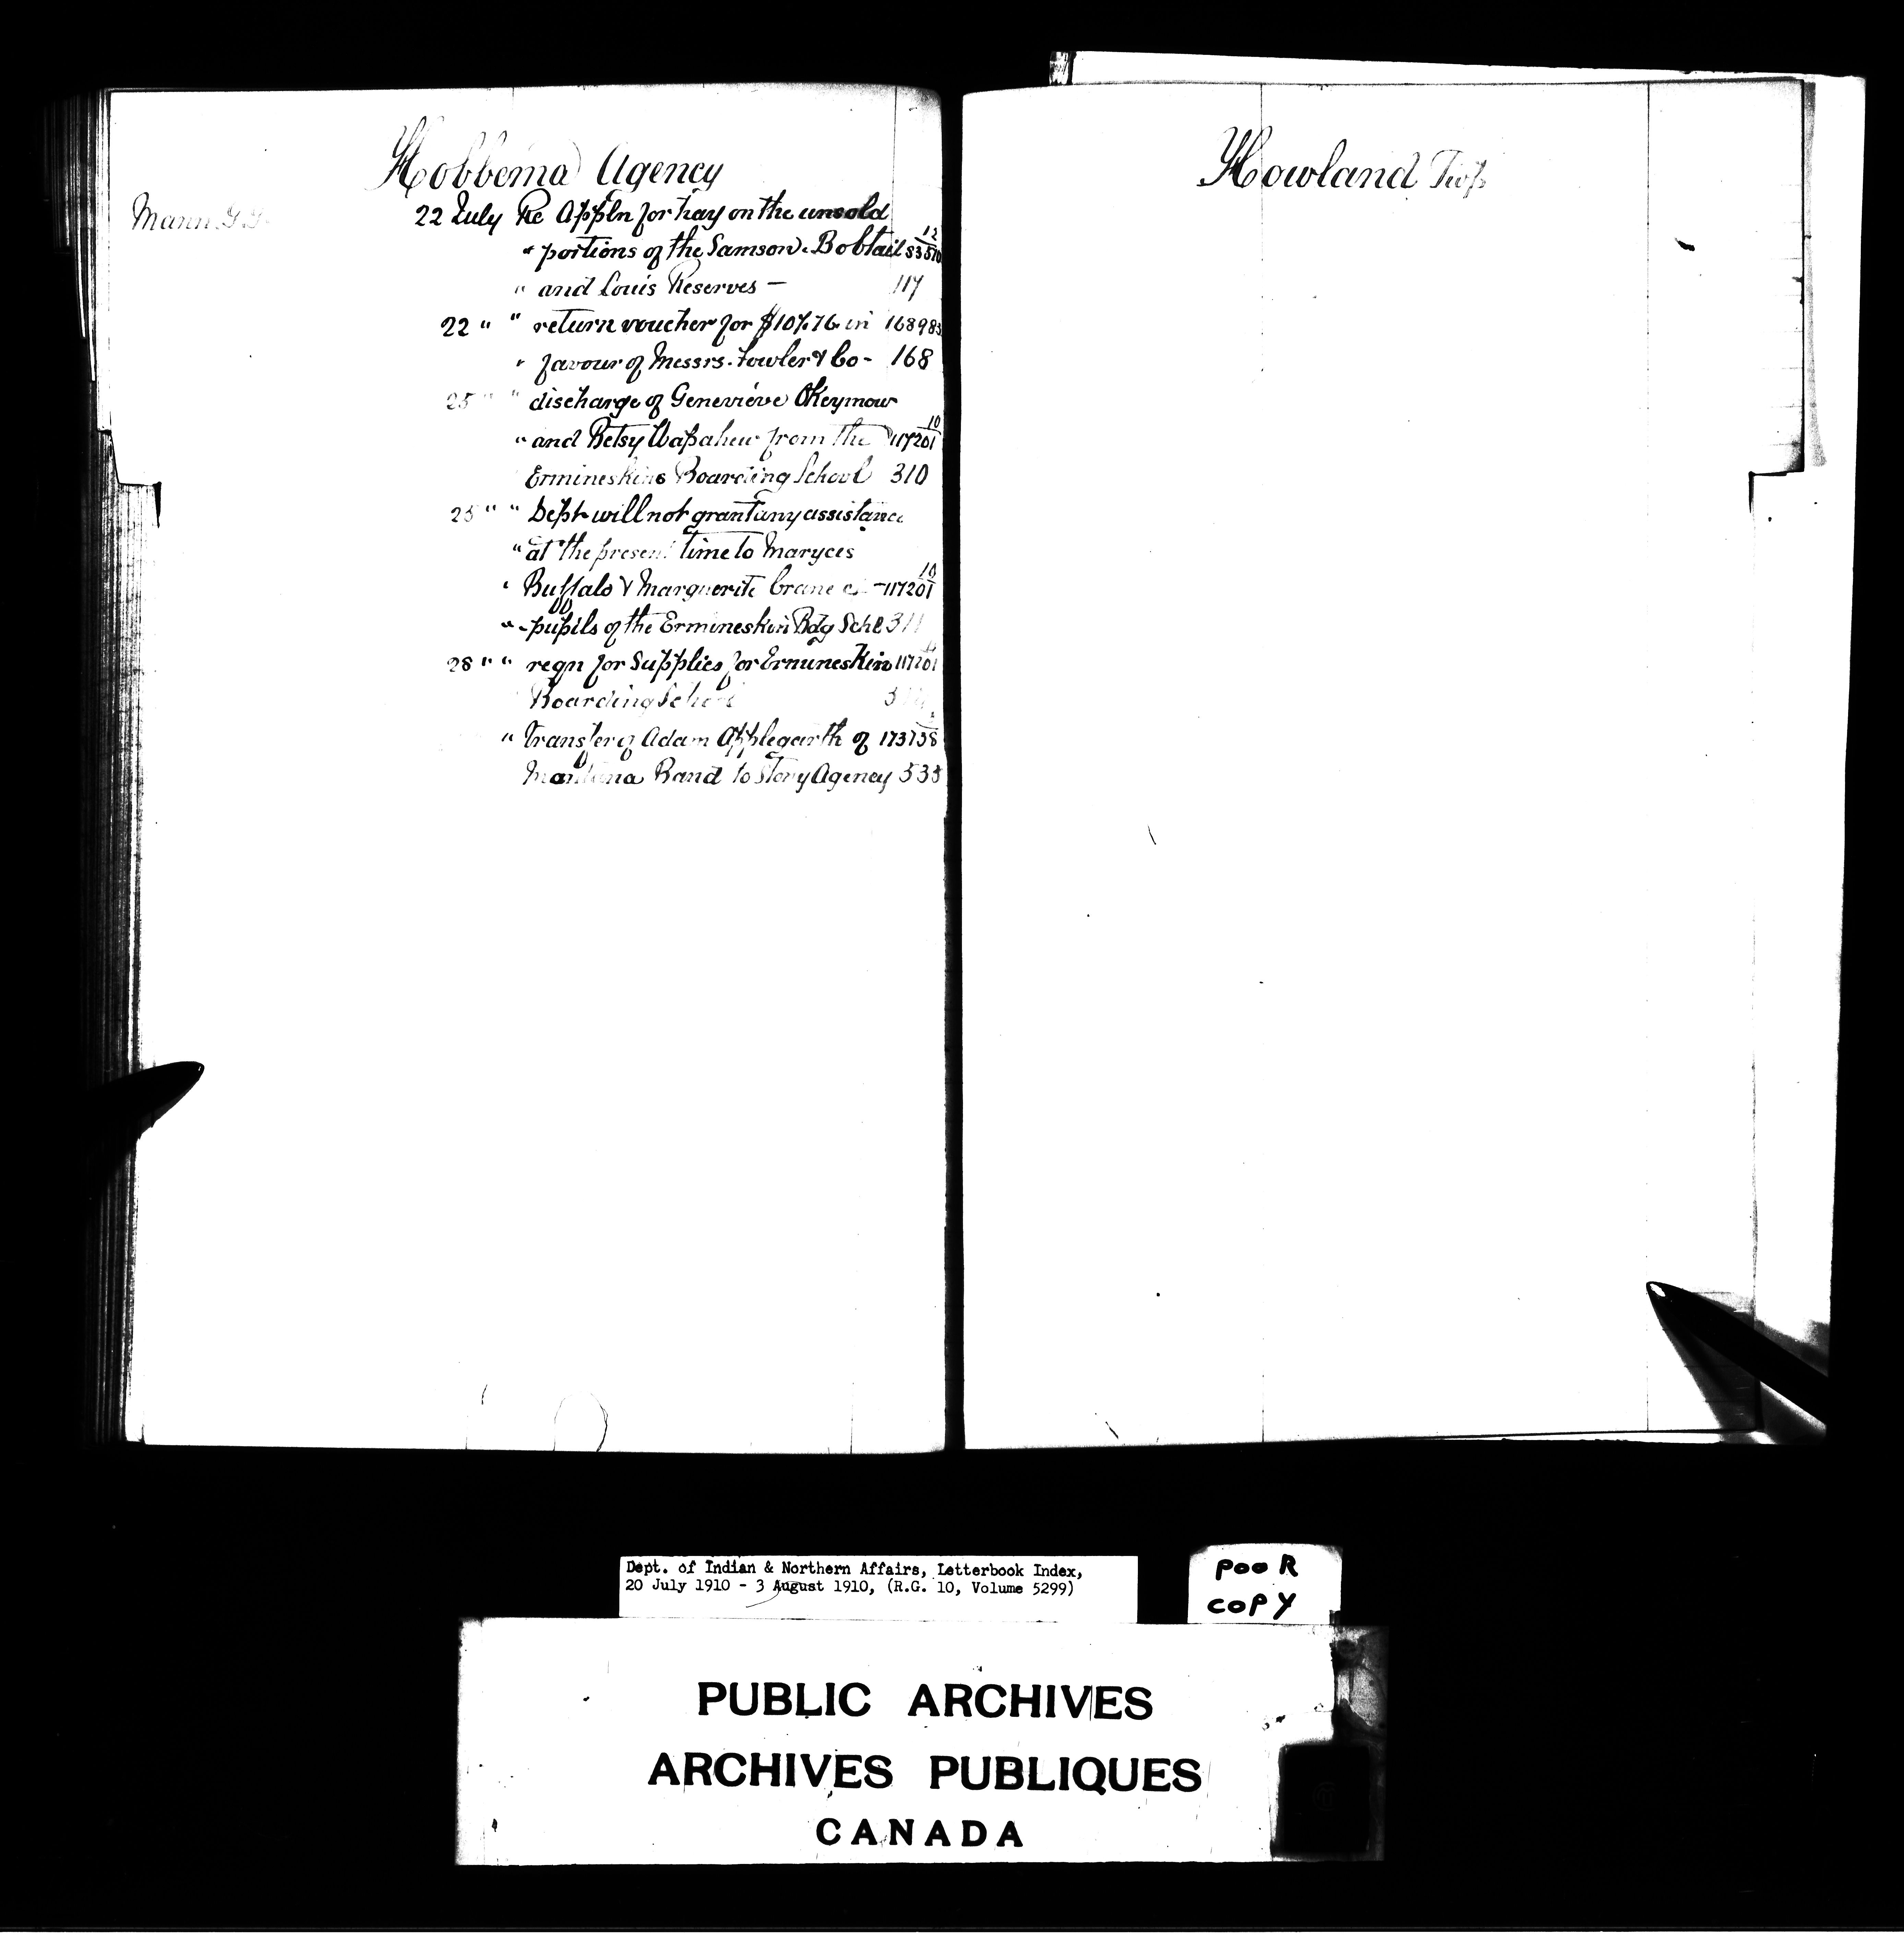 Hobbema Agency
Mann G.G. 22 July Re Appln for hay on the unsold
" portions of the Samson. Bobtail 12
and Louis Reserves — 117
22 " " return voucher for in 16898
" favour of Messrs. Fowler & Co - 168
25 " " discharge of Geneviéve Okeymow
" and Betsy Wapahew from the 117201 10
Ermineskins Boarding School 310
25 " " Dept will not grant any assistance
" at the present time to Maryces
" Buffalo & Marguerite Crane 117201 10
" pupils of the Ermineskin Bdg Schl 311
28 " " reqn for Supplies for Ermineskin 117201
Boarding School
" Transfer of Adam Applegarth of 173738
Band to Stony Agency 538
Howland Twp
Dept. of Indian & Northern Affairs, Letterbook Index,
20 July 1910 - 3 August 1910, (R.G. 10, Volume 5299)
POOR
COPY
PUBLIC ARCHIVES
ARCHIVES PUBLIQUES
CANADA